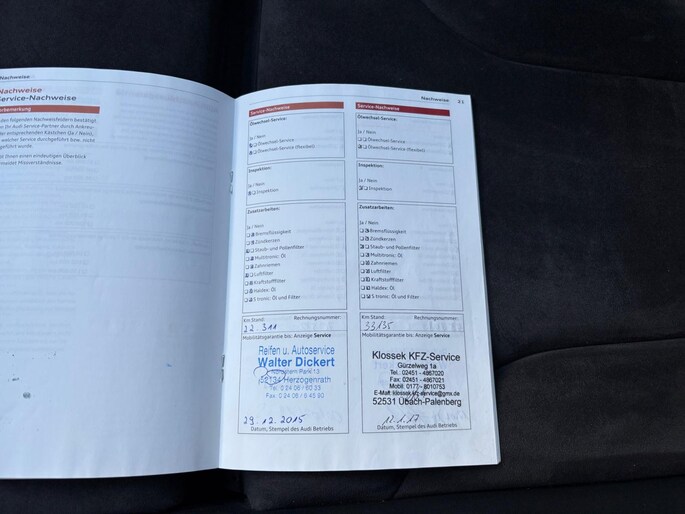 Nachweise
Nachweise
Service-Nachweise
Vorbemerkung
Nachweise 21
Service-Nachweise
Ölwechsel-Service:
Ja / Nein:
Ölwechsel-Service
Ölwechsel-Service (flexibel)
Inspektion:
Ja / Nein:
Inspektion
Zusatzarbeiten:
Ja / Nein:
Bremsflüssigkeit
Zündkerzen
Staub- und Pollenfilter
Multitronic: Öl
Zahnriemen
Luftfilter
Kraftstofffilter
Haldex: Öl
S tronic: Öl und Filter
Km Stand: Rechnungsnummer:
22 311
Mobilitätsgarantie bis: Anzeige Service
Reifen u. Autoservice
Walter Dickert
52134 Herzogenrath
29.12.2015
Datum, Stempel des Audi Betriebs
Service-Nachweise
Ölwechsel-Service:
Ja / Nein:
Ölwechsel-Service
Ölwechsel-Service (flexibel)
Inspektion:
Ja / Nein:
Inspektion
Zusatzarbeiten:
Ja / Nein:
Bremsflüssigkeit
Zündkerzen
Staub- und Pollenfilter
Multitronic: Öl
Zahnriemen
Luftfilter
Kraftstofffilter
Haldex: Öl
S tronic: Öl und Filter
Km Stand: Rechnungsnummer:
33135
Mobilitätsgarantie bis: Anzeige Service
Klossek KFZ-Service
Gürzelweg 1a
Tel.: 02451 - 4867020
Fax: 02451 - 4867021
Mobil: 0177 - 8010753
E-Mail: klossek.kfz-service@gmx.de
52531 Übach-Palenberg
Datum, Stempel des Audi Betriebs